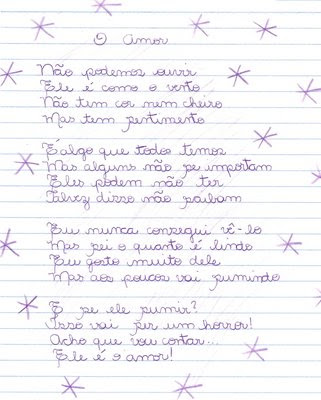 O Amor
Não podemos ouvir
Ele é como o vento
Não tem cor nem cheiro
Mas tem sentimento
É algo que todo temos
Mas alguns não se importam
Eles podem não ter
Talvez disso não saibam
Eu nunca consegui vê-lo
Mas sei o quanto é lindo
Eu gosto muito dele
Mas aos poucos vai sumindo
E se ele sumir?
Isso vai ser um horror!
Acho que vou contar...
Ele é o amor!